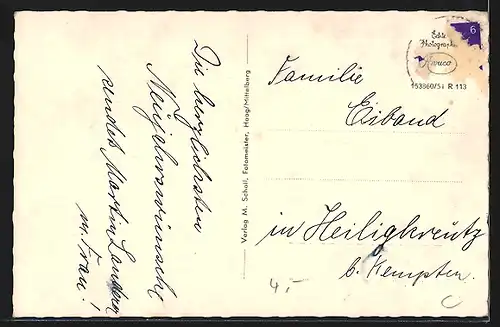 Die herzlichsten
Neujahrswünsche
sendet Martin Landerer
m. Frau!
Verlag M. Scholl, Fotomeister, Haag/Mittelberg
Echte
Photographie
153860/51 R 113
6
Familie
Eiband
in Heiligkreutz
b. Kempten.
4.-
C